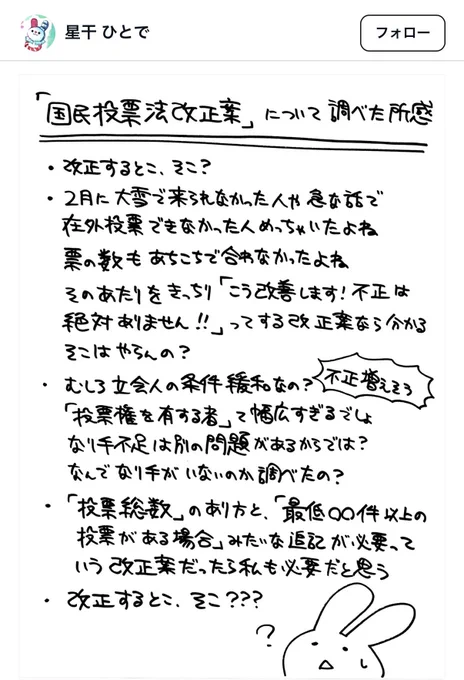 星干 ひとで
フォロー
「国民投票法改正案」について調べた所感
・改正するとこ、そこ?
・2月に大雪で来られなかった人や急な話で
在外投票できなかった人めっちゃいたよね
票の数もあちこちで合わなかったよね
そのあたりをきっちり「こう改善します!不正は
絶対ありません!!」ってする改正案なら分かる
そこはやらんの?
・むしろ立会人の条件緩和なの?
不正増えそう
「投票権を有する者」て幅広すぎるでしょ
なり手不足は別の問題があるからでは?
なんでなり手がいないのか調べたの?
・「投票総数」のあり方と、「最低〇〇件以上の
投票がある場合」みたいな追記が必要って
いう改正案だったら私も必要だと思う
・改正するとこ、そこ???
?